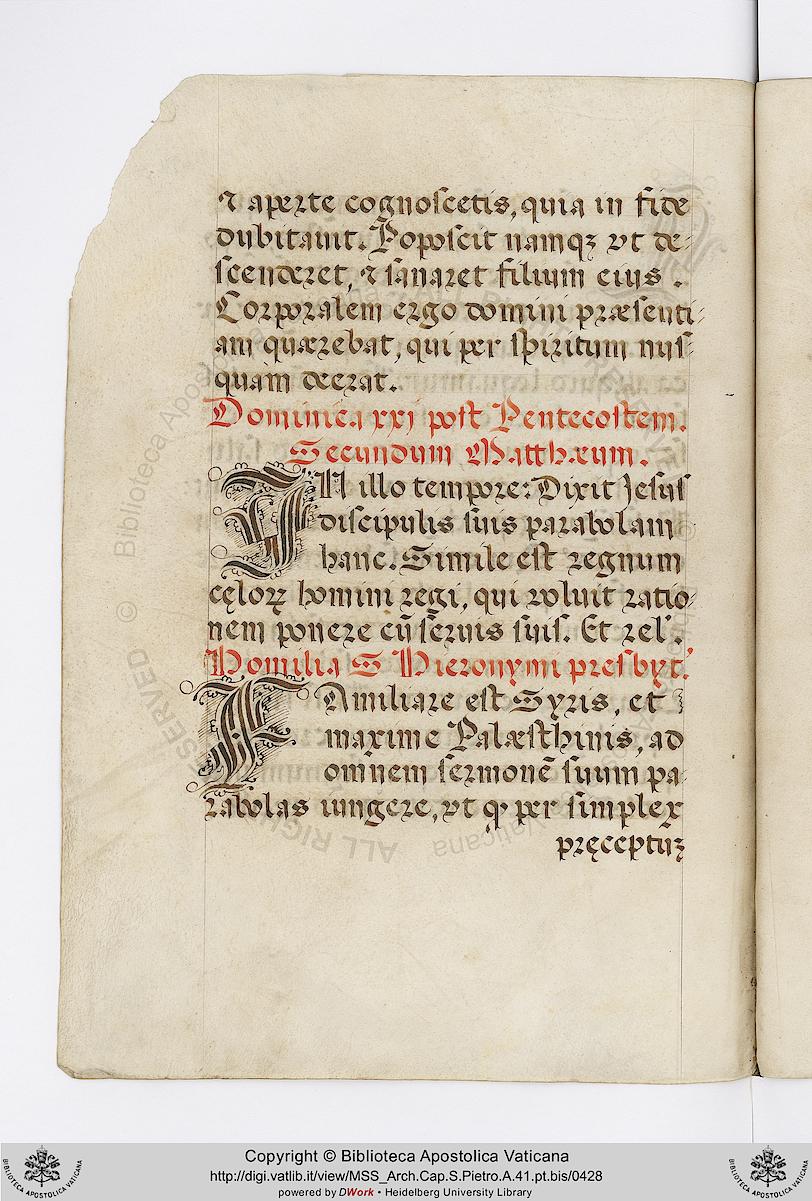 ⁊ aperte cognoscetis, quia in fide
dubitauit. Poposcit namqꝫ vt de-
scenderet, ⁊ sanaret filium eius.
Corporalem ergo domini præsenti-
am quærebat, qui per spiritum nus-
quam deerat.
Dominica xxj post Pentecostem.
Secundum Matthæum.
IN illo tempore: Dixit Jesus
discipulis suis parabolam
hanc. Simile est regnum
cęloꝝ homini regi, qui voluit ratio-
nem ponere cū seruis suis. Et rel'.
Homilia S Hieronymi presbyt.'
FAmiliare est Syris, et
maxime Palæsthinis, ad
omnem sermonē suum pa-
rabolas iungere, vt ꝙ per simplex
pręceptuꝫ
© Biblioteca Apostolica Vaticana
ALL RIGHTS RESERVED
BIBLIOTECA APOSTOLICA VATICANA
Copyright © Biblioteca Apostolica Vaticana
http://digi.vatlib.it/view/MSS_Arch.Cap.S.Pietro.A.41.pt.bis/0428
powered by DWork • Heidelberg University Library
BIBLIOTECA APOSTOLICA VATICANA